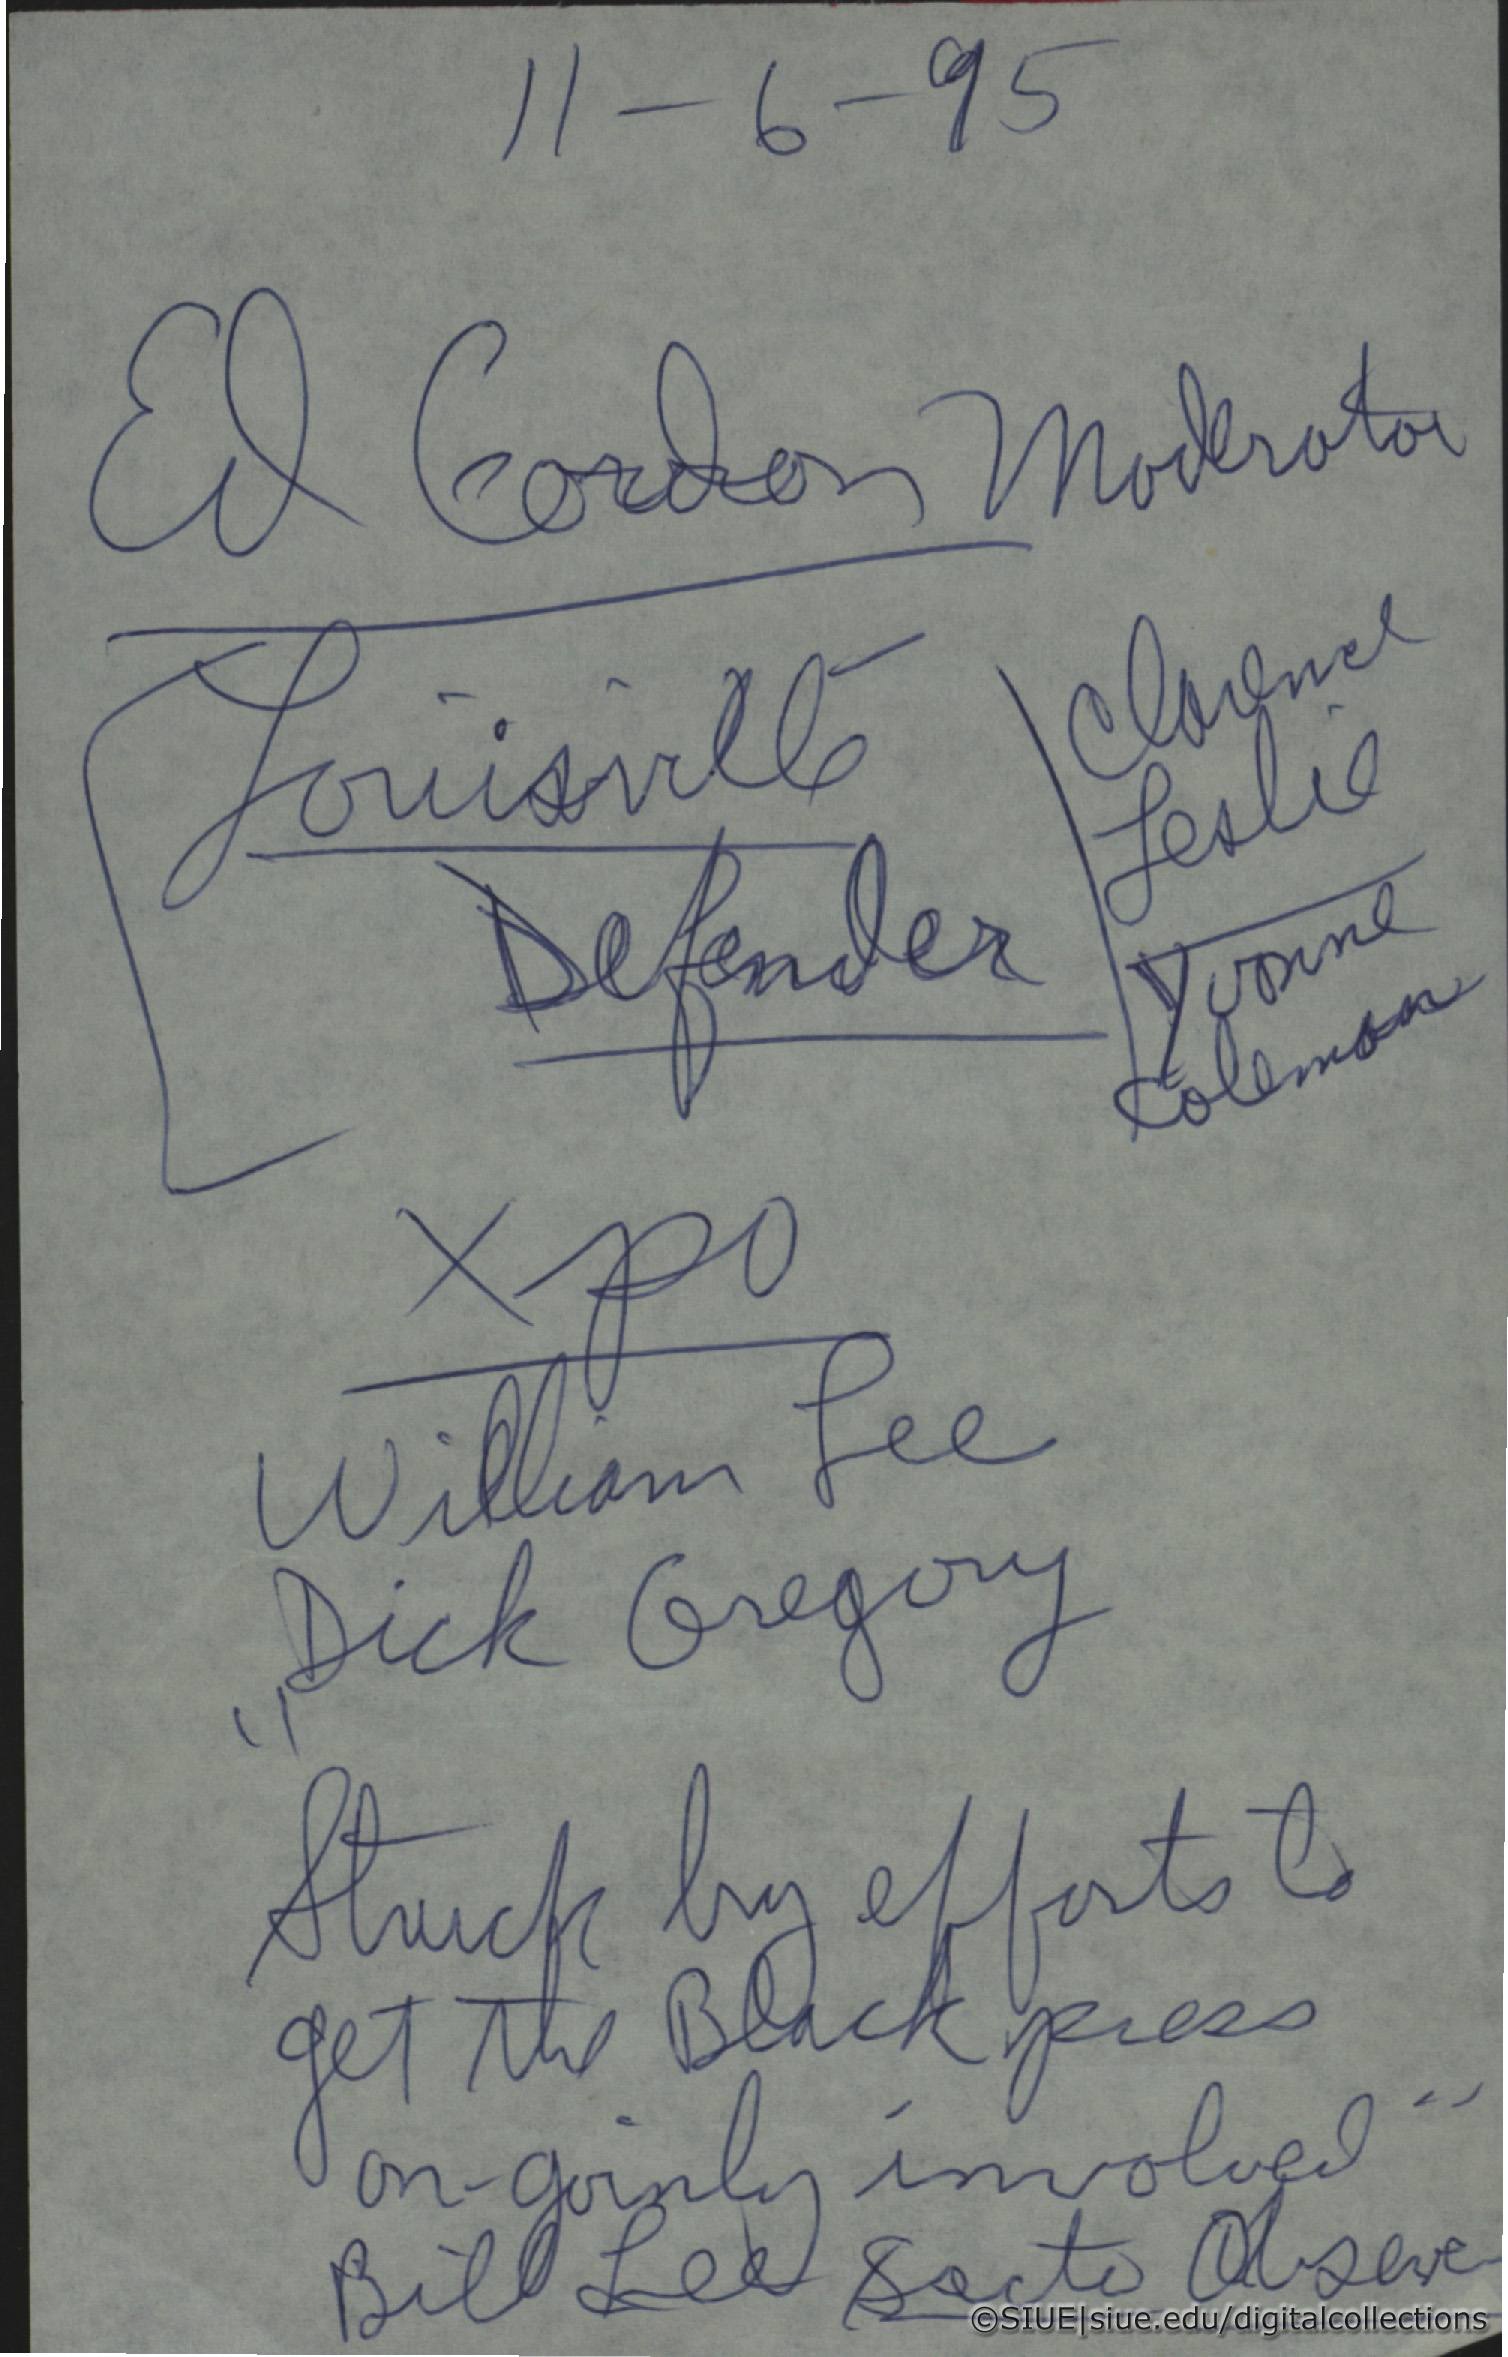 11-6-95
Ed Gordon Moderator
Louisville
Defender
Clarence
Leslie
Yvonne
Coleman
Xpo
William Lee
Dick Gregory
"Struck by efforts to
get the Black press
on-goinly involved"
Bill Lee Sacto Observe
©SIUE|siue.edu/digitalcollections